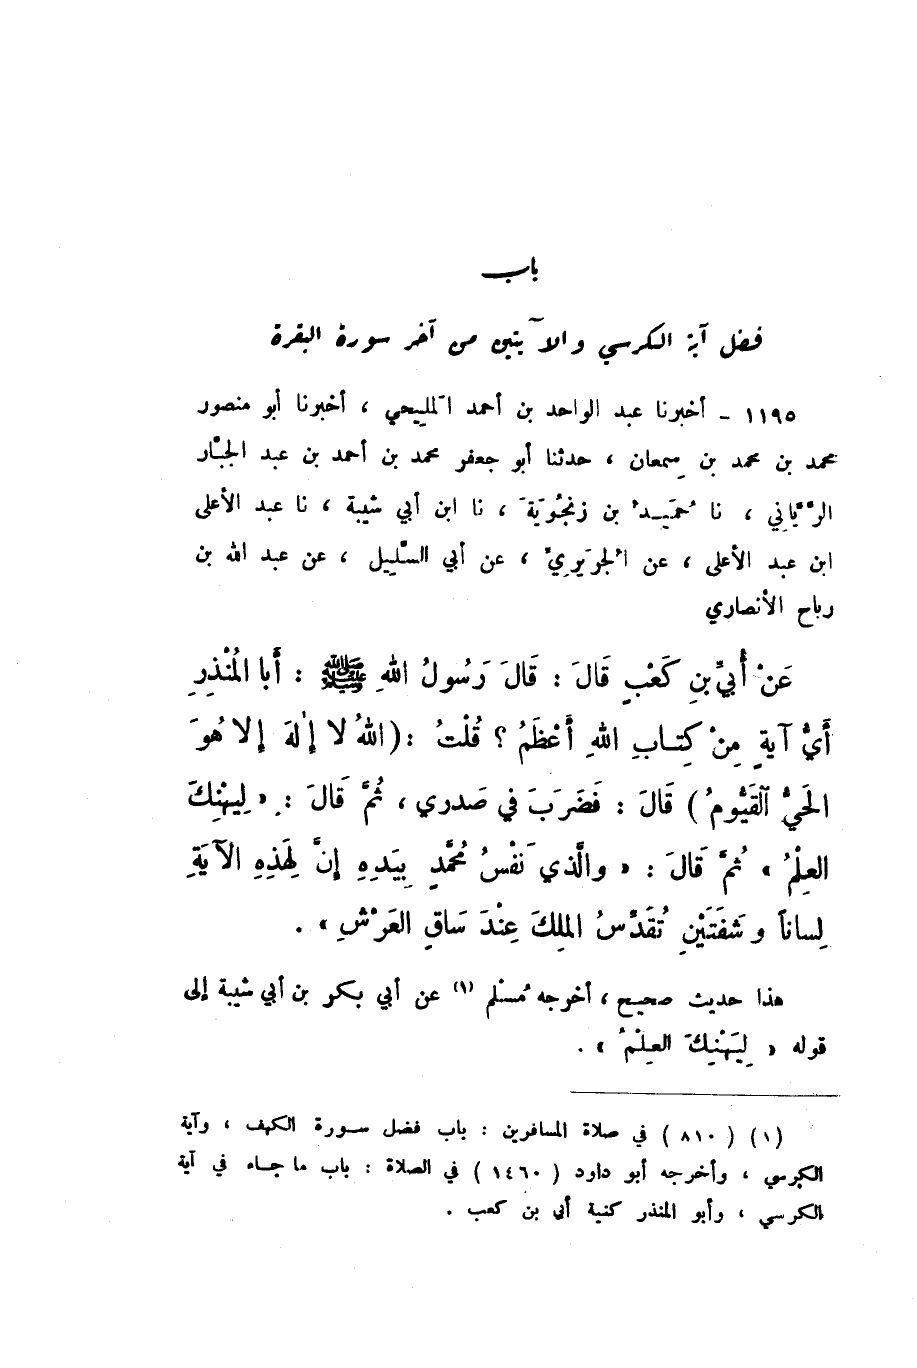 باب
فضل آية الكرسي والآيتين من آخر سورة البقرة
١١٩٥ - أخبرنا عبد الواحد بن أحمد المَليحي ، أخبرنا أبو منصور
محمد بن محمد بن سِمعان ، حدثنا أبو جعفر محمد بن أحمد بن عبد الجبّار
الرَّيّاني ، نا حُمَيدُ بن زنجُويَةَ ، نا ابن أبي شيبة ، نا عبد الأعلى
ابن عبد الأعلى ، عن الجُرَيرِيّ ، عن أبي السَّليل ، عن عبد الله بن
رباح الأنصاري
عَنْ أُبَيِّ بنِ كَعْبٍ قَالَ : قَالَ رَسُولُ اللهِ ﷺ : أَبا المُنْذِرِ
أَيُّ آيةٍ مِنْ كِتابِ اللهِ أَعْظَمُ ؟ قُلْتُ : ( اللهُ لا إلٰهَ إلا هُوَ
الحَيُّ القَيُّومُ ) قَالَ : فَضَرَبَ في صَدري ، ثُمَّ قَالَ : « لِيهْنِكَ
العِلْمُ » ثُمَّ قَالَ : « والَّذي نَفْسُ مُحَمَّدٍ بِيَدِهِ إنَّ لِهَذِهِ الآيَةِ
لِساناً وشَفَتَيْنِ تُقَدِّسُ المَلِكَ عِنْدَ سَاقِ العَرْشِ » .
هذا حديث صحيح ، أخرجه مُسْلم (١) عن أبي بكر بن أبي شيبة إلى
قوله « لِيَهْنِكَ العِلْمُ » .
(١) ( ٨١٠ ) في صلاة المسافرين : باب فضل سورة الكهف ، وآية
الكرسي ، وأخرجه أبو داود ( ١٤٦٠ ) في الصلاة : باب ما جاء في آية
الكرسي ، وأبو المنذر كنية أبي بن كعب .